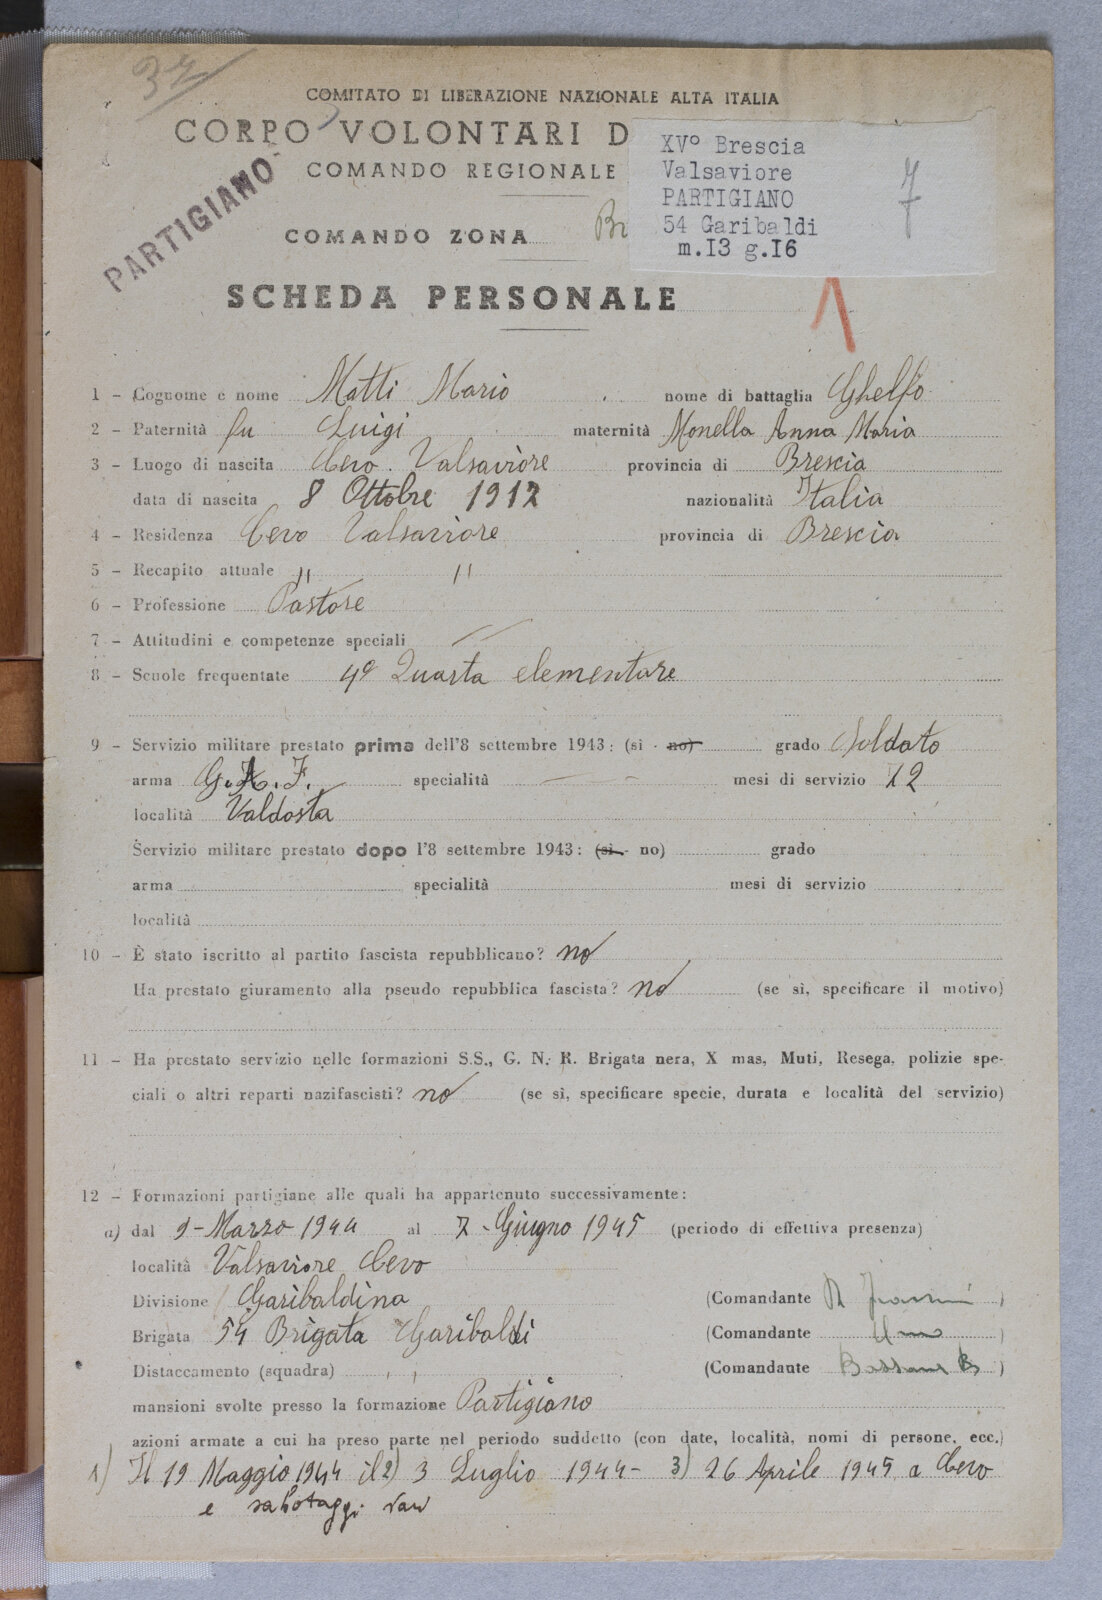 37
COMITATO DI LIBERAZIONE NAZIONALE ALTA ITALIA
CORPO VOLONTARI D
COMANDO REGIONALE
PARTIGIANO
COMANDO ZONA Br
XV° Brescia
Valsaviore
PARTIGIANO
54 Garibaldi
m.I3 g.I6
7
SCHEDA PERSONALE
1 - Cognome e nome Matti Mario nome di battaglia Ghelfo
2 - Paternità fu Luigi maternità Monella Anna Maria
3 - Luogo di nascita Cevo. Valsaviore provincia di Brescia
data di nascita 8 Ottobre 1912 nazionalità Italia
4 - Residenza Cevo Valsaviore provincia di Brescia
5 - Recapito attuale " "
6 - Professione Pastore
7 - Attitudini e competenze speciali
8 - Scuole frequentate 4ª Quarta elementare
9 - Servizio militare prestato prima dell'8 settembre 1943: (sì - no) grado Soldato
arma G.A.F. specialità mesi di servizio 12
località Valdosta
Servizio militare prestato dopo l'8 settembre 1943: (sì - no) grado
arma specialità mesi di servizio
località
10 - È stato iscritto al partito fascista repubblicano? no
Ha prestato giuramento alla pseudo repubblica fascista? no (se sì, specificare il motivo)
11 - Ha prestato servizio nelle formazioni S.S., G. N. R. Brigata nera, X mas, Muti, Resega, polizie spe-
ciali o altri reparti nazifascisti? no (se sì, specificare specie, durata e località del servizio)
12 - Formazioni partigiane alle quali ha appartenuto successivamente:
a) dal 9-Marzo 1944 al 7-Giugno 1945 (periodo di effettiva presenza)
località Valsaviore Cevo
Divisione Garibaldina (Comandante )
Brigata 54 Brigata Garibaldi (Comandante )
Distaccamento (squadra) " (Comandante B)
mansioni svolte presso la formazione Partigiano
azioni armate a cui ha preso parte nel periodo suddetto (con date, località, nomi di persone, ecc.)
1) Il 19 Maggio 1944 il 2) 3 Luglio 1944 - 3) 26 Aprile 1945 a Cevo
e sabotaggi vari